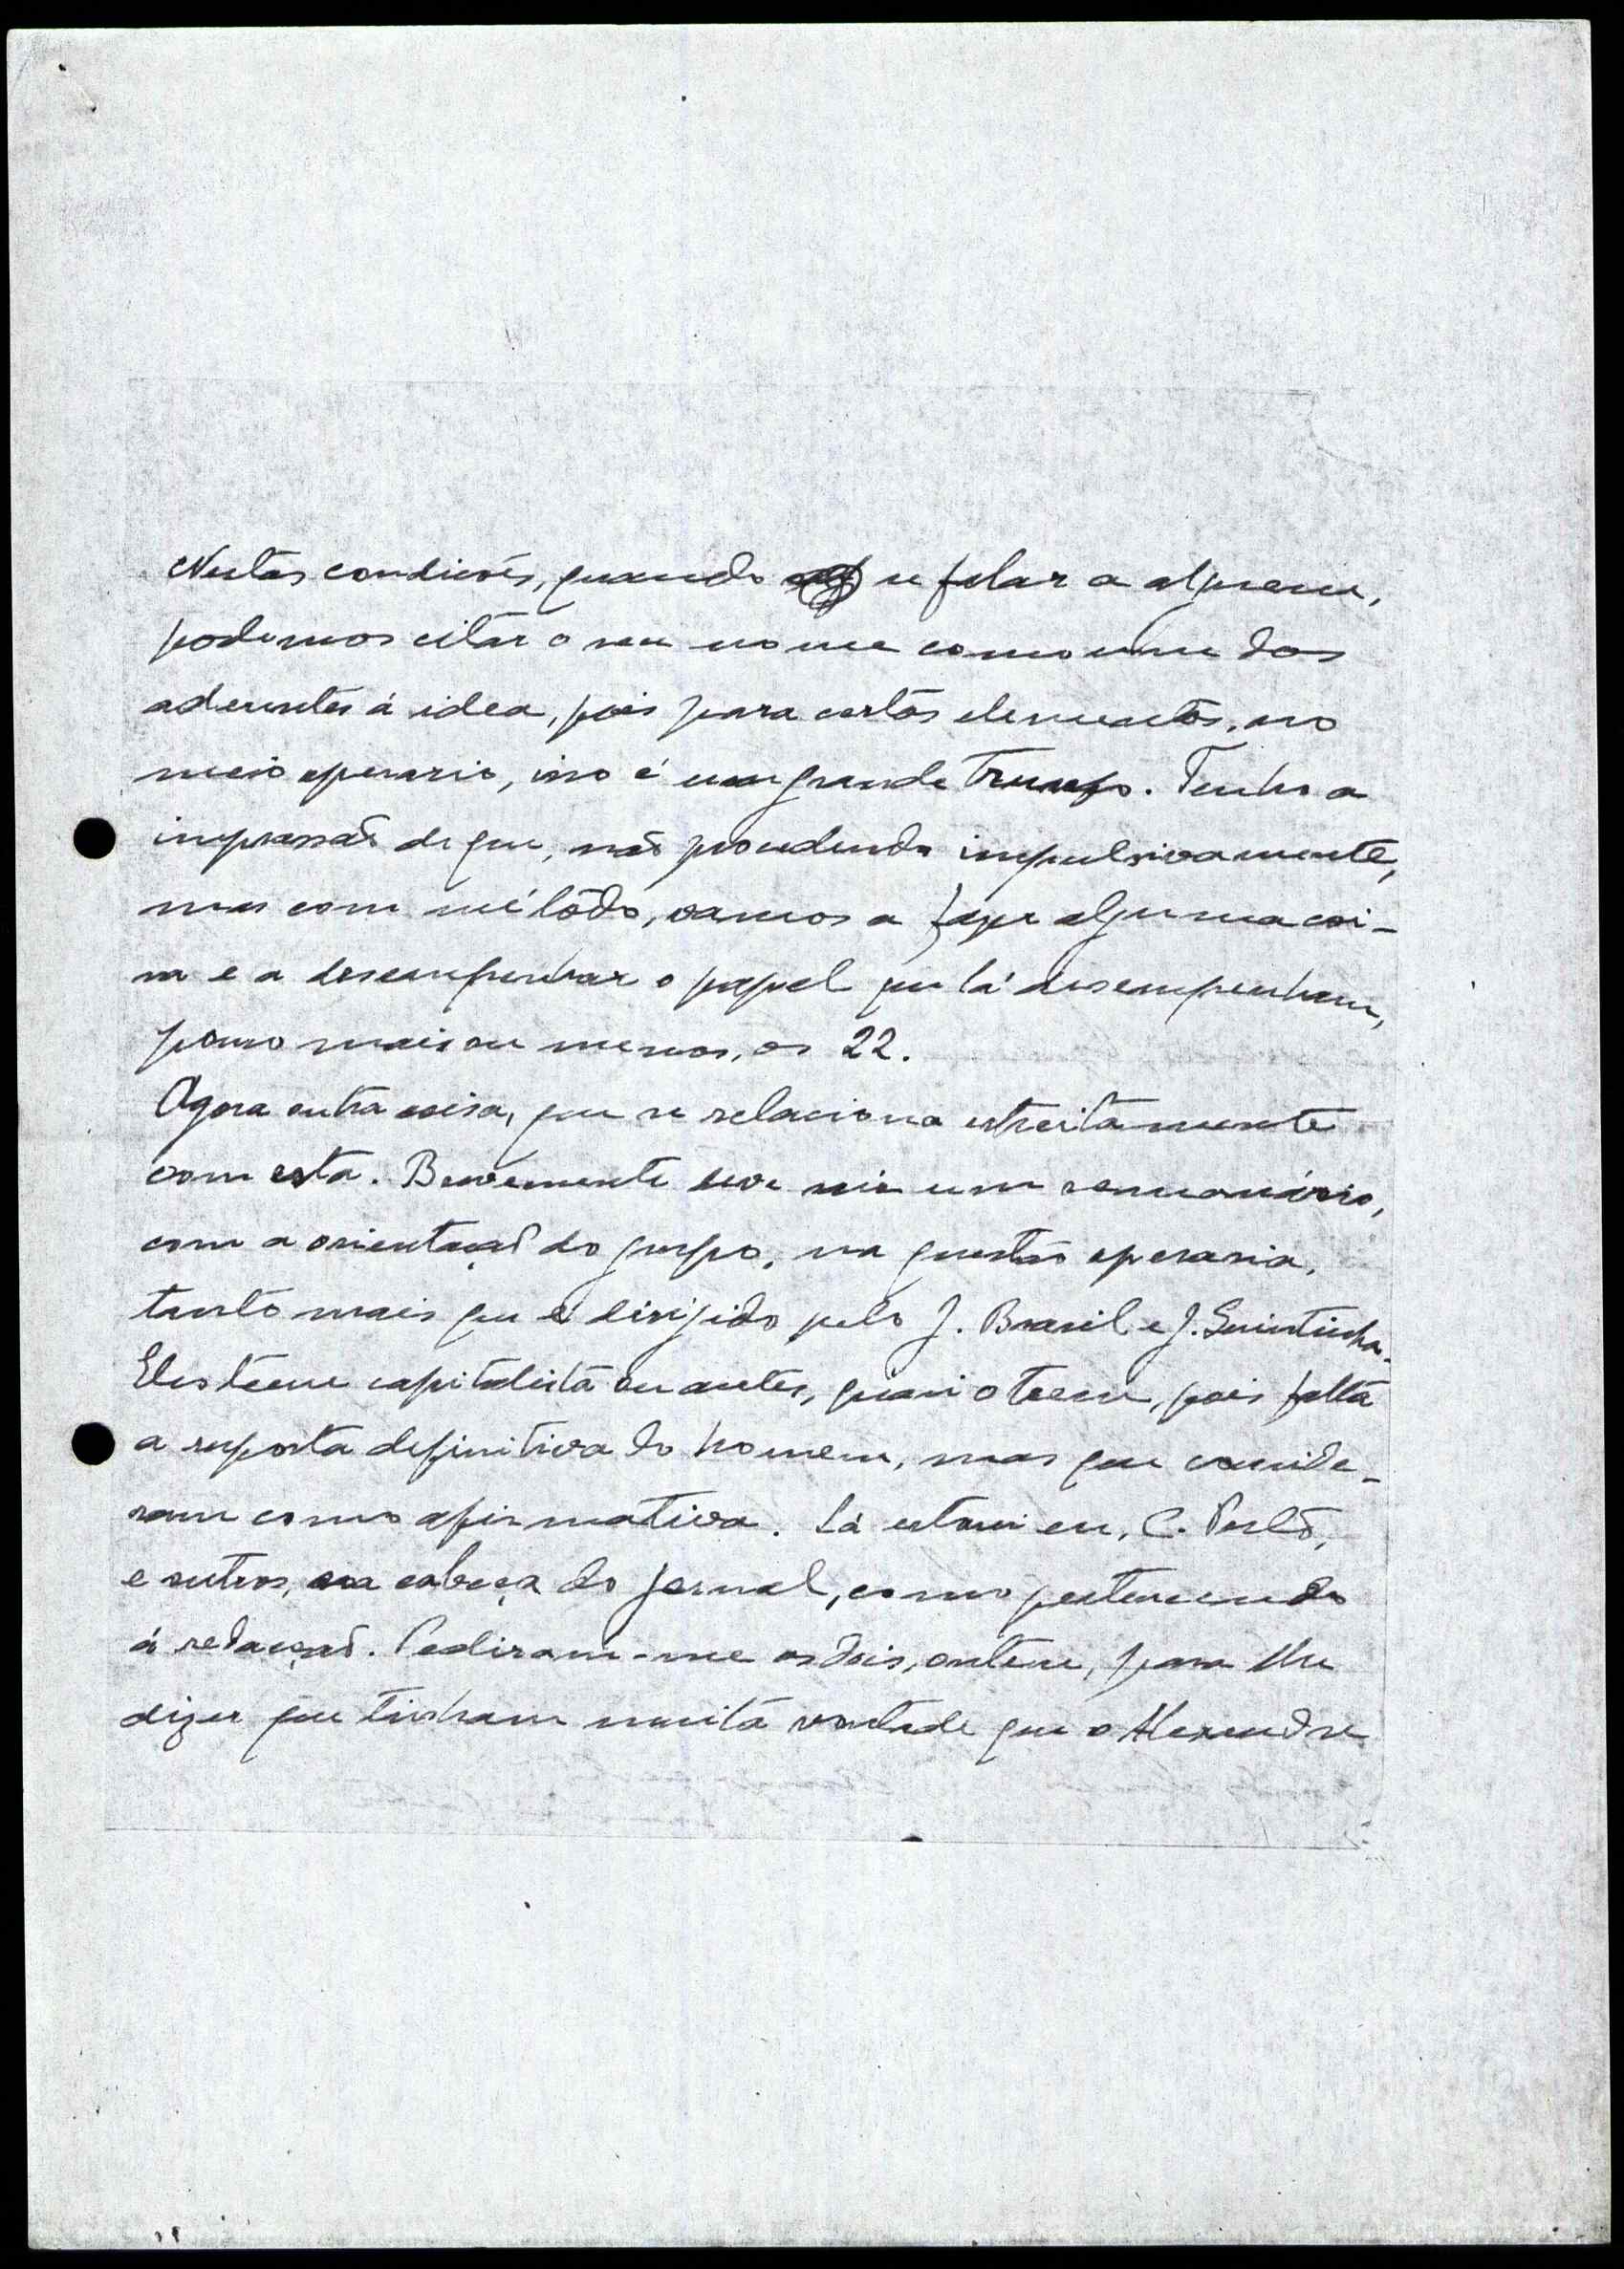 Nestas condicões, quando se falar a alguem,
podemos citar o seu nome como um dos
aderentes á idea, pois para certos elementos, no
meio operario, isso é um grande trunfo. Tenho a
impressaõ de que, naõ procedendo impulsivamente,
mas com método, vamos a fazer alguma coi-
sa e a desempenhar o papel que lá desempenham,
pouco mais ou menos, os 22.
Agora outra coisa, que se relaciona estreitamente
com esta. Brevemente deve sair um semanário,
com a orientaçaõ do grupo, na questão operaria,
tanto mais que é dirigido pelo J. Brasil e J. Quintinha.
Eles teem capitalista ou antes, quasi o teem, pois falta
a resposta definitiva do homem, mas que conside-
ram como afirmativa. Lá estarei eu, C.
e outros, na cabeça do jornal, como pertencendo
á redaçaõ. Pediram-me os dois, ontem, para lhe
dizer que tinham muita vontade que o Alexandre